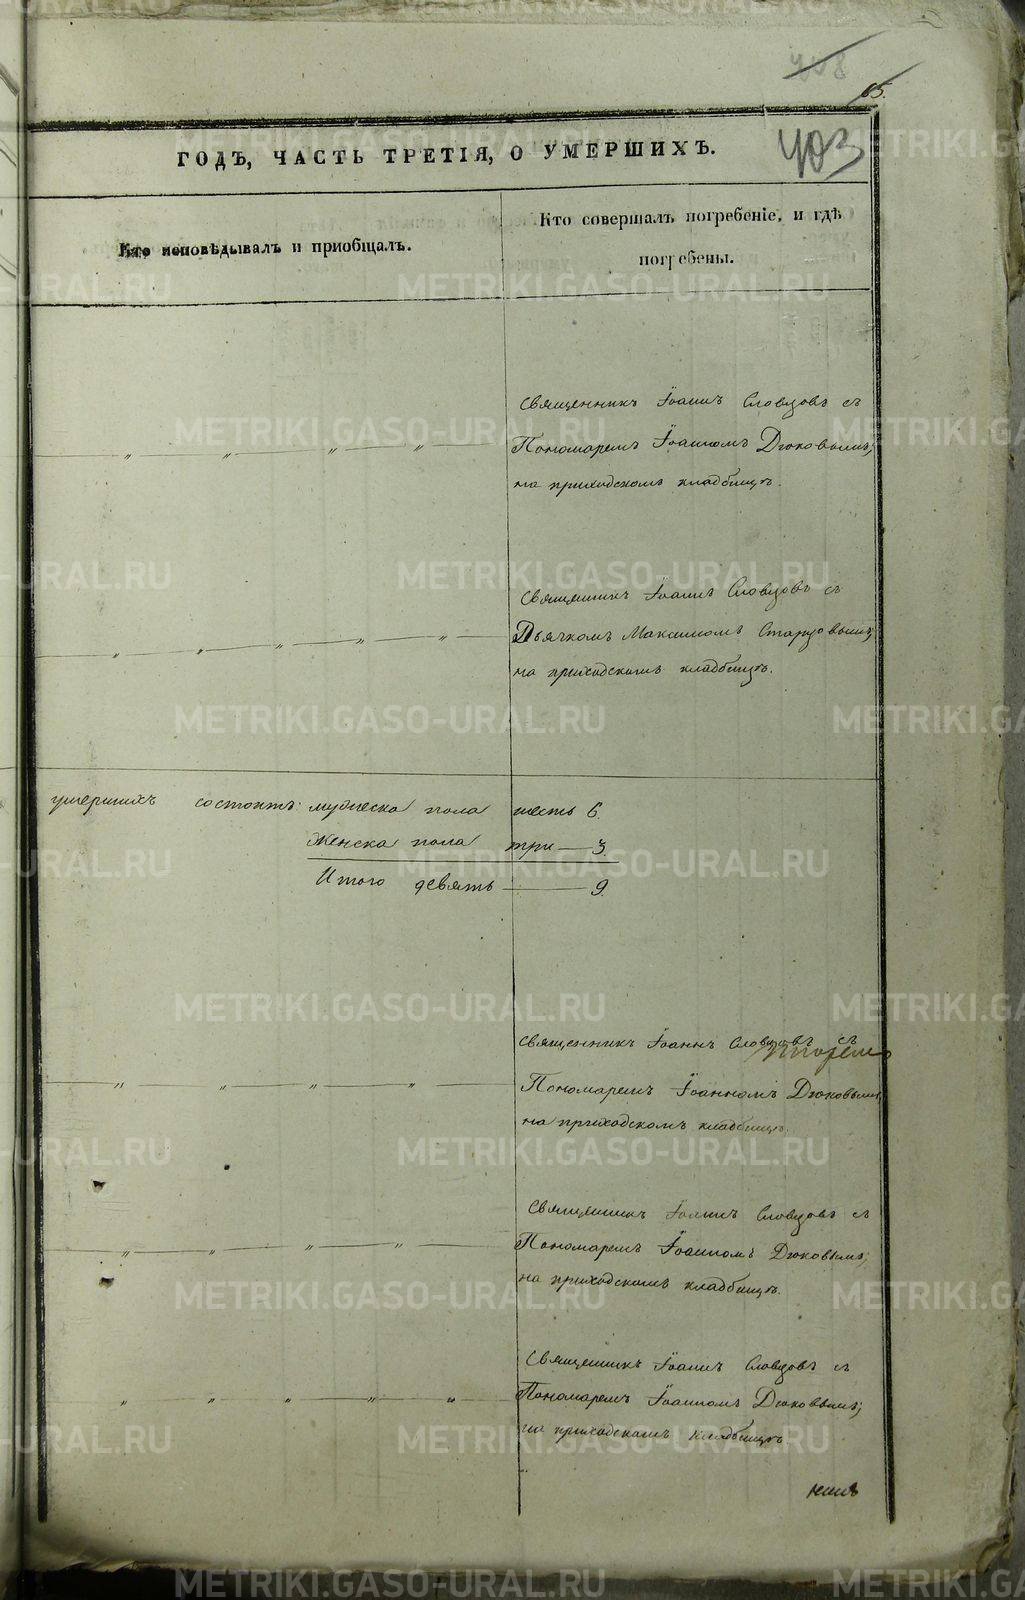 408
65.
ГОДЪ, ЧАСТЬ ТРЕТІЯ, О УМЕРШИХЪ.
403
Кто исповѣдывалъ и пріобщалъ.
Кто совершалъ погребеніе, и гдѣ
погребены.
Священникъ Іоаннъ Словцовъ съ
Пономаремъ Іоанномъ Дюковымъ;
на приходскомъ кладбищѣ.
Священникъ Іоаннъ Словцовъ съ
Дьячкомъ Максимомъ Старцовымъ;
на приходскомъ кладбищѣ.
умершихъ состоитъ: мужеска пола шесть 6.
Женска пола три — 3.
Итого девять — 9.
Священникъ Іоаннъ Словцовъ съ
Пономаремъ Іоанномъ Дюковымъ
на приходскомъ кладбищѣ.
Священникъ Іоаннъ Словцовъ съ
Пономаремъ Іоанномъ Дюковымъ;
на приходскомъ кладбищѣ.
Священникъ Іоаннъ Словцовъ съ
Пономаремъ Іоанномъ Дюковымъ;
на приходскомъ кладбищѣ
METRIKI.GASO-URAL.RU